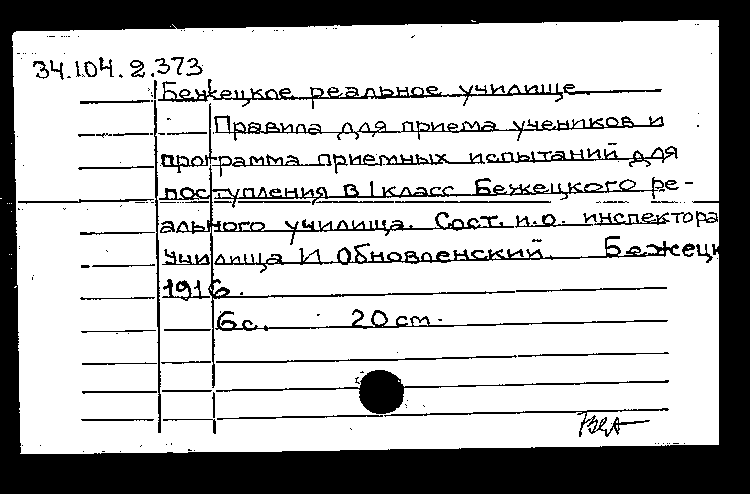 34.104.2.373
Бежецкое реальное училище.
Правила для приема учеников и
программа приемных испытаний для
поступления в I класс Бежецкого ре-
ального училища. Сост. и.о. инспектора
училища И Обновленский. Бежецк
1916.
6с. 20 ст.